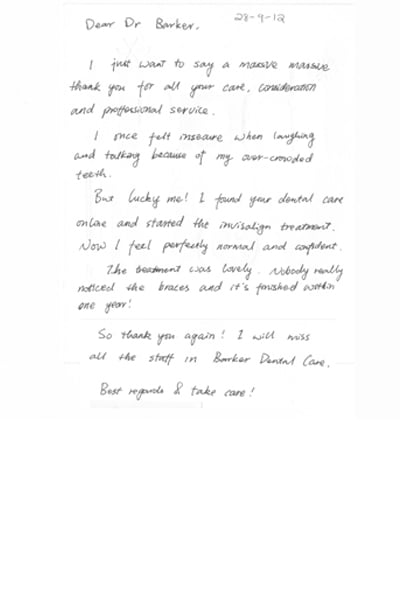 28-9-12
Dear Dr Barker,
I just want to say a massive massive
thank you for all your care, consideration
and proffessional service.
I once felt insecure when laughing
and talking because of my over-crowded
teeth.
But lucky me! I found your dental care
online and started the invisalign treatment.
Now I feel perfectly normal and confident.
The treatment was lovely. Nobody really
noticed the braces and it's finished within
one year!
So thank you again! I will miss
all the staff in Barker Dental Care.
Best regards & take care!